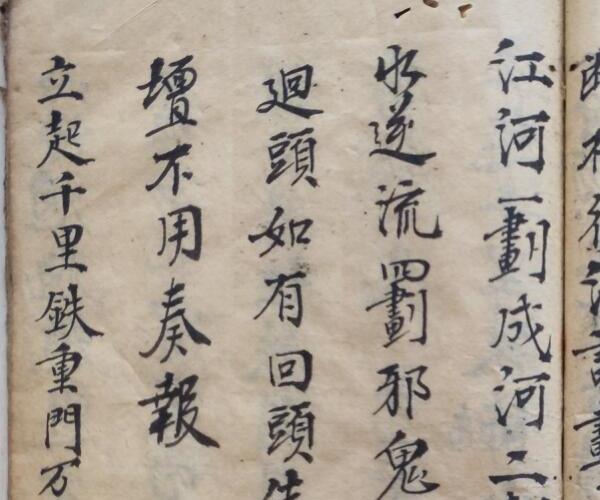 江河一劃成河二
水逆流四劃邪鬼
廻頭如有回頭
壇不用奏報
立起千里鉄重門万